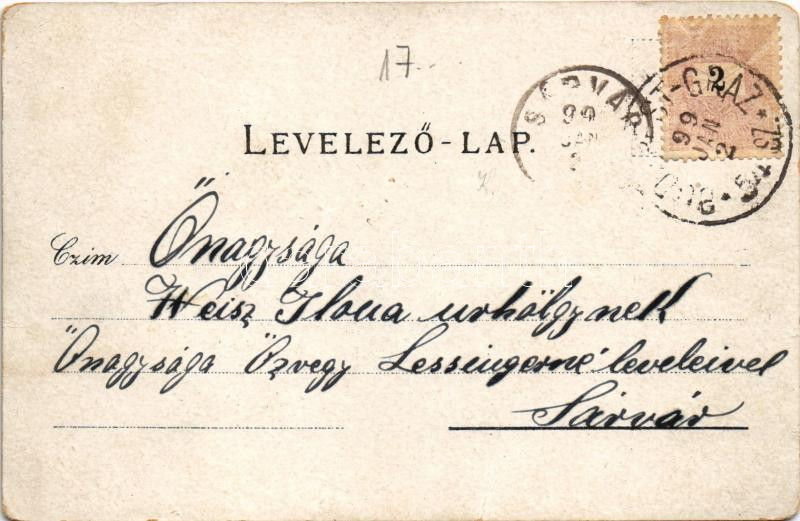 17.
2
SÁRVÁR
99
JAN
2
BUDAPEST-GRAZ * 23
99
JAN
2
LEVELEZŐ-LAP.
Czim Önagysága
Weisz Ilona urhölgynek
Önagysága Özvegy Lessingerné leveleivel
Sárvár